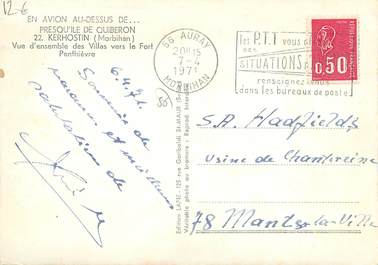 12-E
EN AVION AU-DESSUS DE...
PRESQU'ILE DE QUIBERON
22. KERHOSTIN (Morbihan)
Vue d'ensemble des Villas vers le Fort
Penthièvre
56 AURAY
20H15
7-4
1971
MORBIHAN
les P.T.T vous
des
SITUATIONS
renseignez-vous
dans les bureaux de poste
0,50
6.4.71.
Souvenir de
vacances et meilleures
salutations de
56
Edition LAPIE - 125 rue Garibaldi St-MAUR
Véritable photo au bromure - Reprod. Inter.
S.A. Hadfields
Usine de Chantereine
78 Mantes-la-Ville